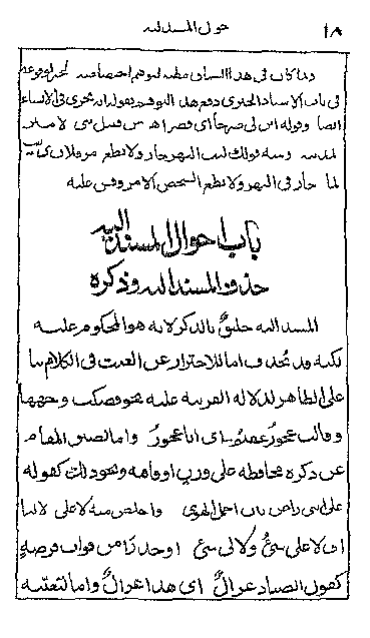 ١٨ حول المسند اليه
في باب الاسناد الخبري دفع هذا التوهم بقوله انه يجري في الانشاء
ايضا وقوله ابن لي صرحا اي قصرا
ومنه قولك ليت النهر جار ولا تطع امر فلان
جار في النهر ولا تطع الشخص الامر وقس عليه
باب احوال المسند اليه
حذف المسند اليه وذكره
المسند اليه خليقٌ بالذكر لانه هو المحكوم عليه
لكنه قد يُحذف اما للاحتراز عن العبث في الكلام بنا
على الظاهر لدلالة القرينة عليه نحو فصكت وجهها
وقالت عجوزٌ عقيمٌ اي انا عجوزٌ واما لضيق المقام
عن ذكره محافظة على وزن او قافية ونحو ذلك كقوله
على انني راض بان احمل الهوى واخلص منه لا علي ولا ليا
اي لا علي شيءٌ ولا لي شيءٌ او حذرًا من فوات فرصةٍ
كقول الصياد غزالٌ اي هذا غزالٌ واما لتعينه